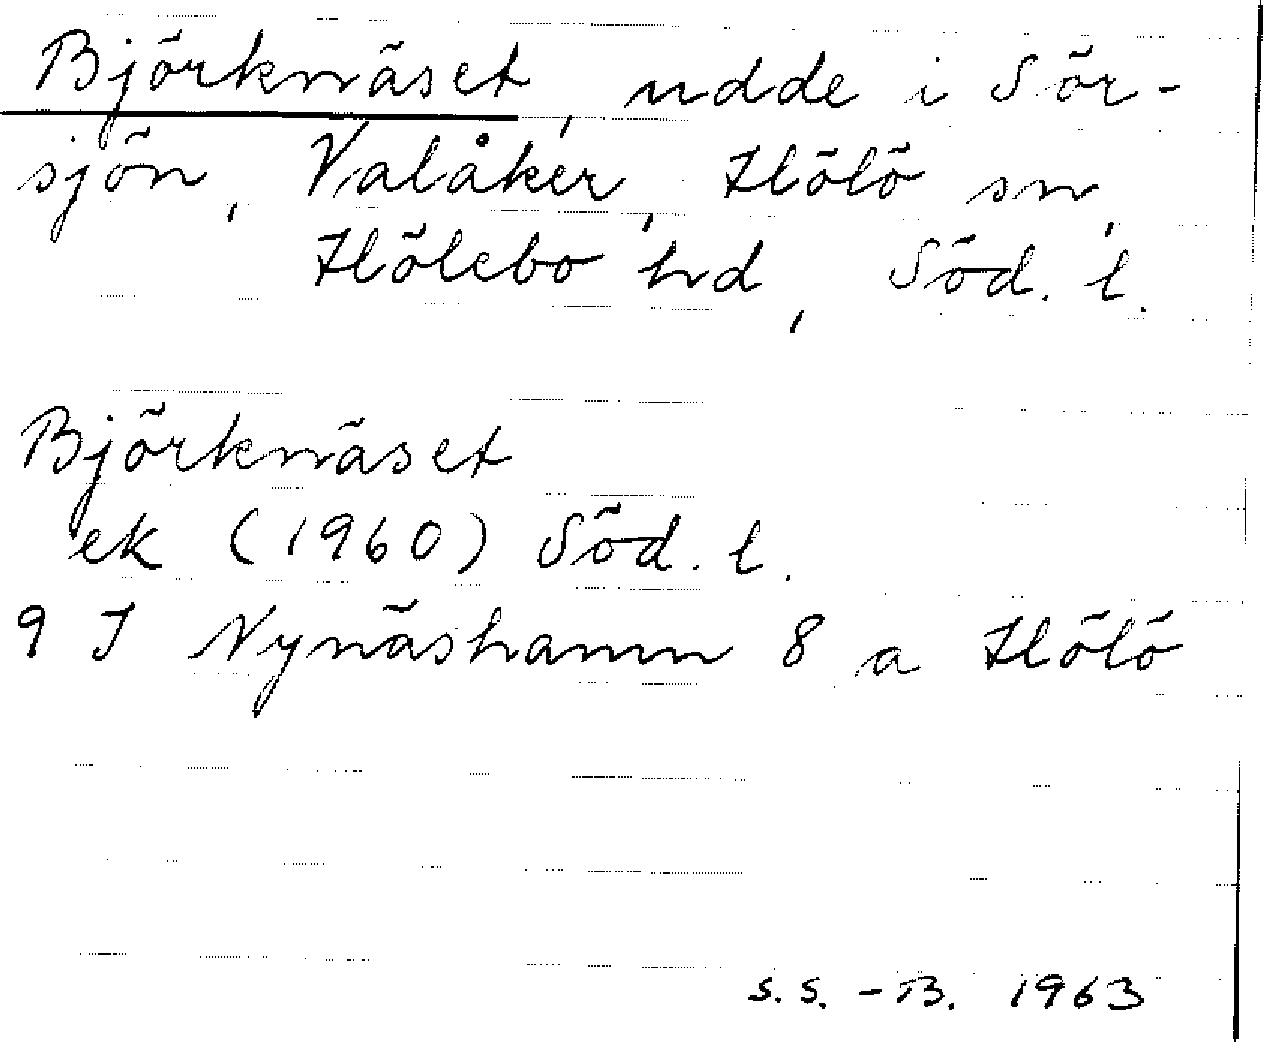 Björknäset, udde i Sör-
sjön, Valåker, Hölö sn,
Hölebo hd, Söd. l.
Björknäset
ek (1960) Söd. l.
9 I Nynäshamn 8 a Hölö
S.S. - B. 1963